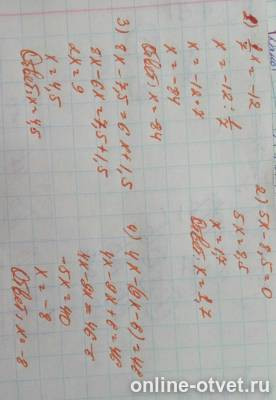 1) 1/7 x = -12
x = -12 : 1/7
x = -12 · 7
x = -84
Ответ: x = -84
2) 5x - 8,5 = 0
5x = 8,5
x = 1,7
Ответ: x = 1,7
3) 8x - 7,5 = 6x + 1,5
8x - 6x = 7,5 + 1,5
2x = 9
x = 4,5
Ответ: x = 4,5
4) 4x - (9x - 8) = 48
4x - 9x + 8 = 48
4x - 9x = 48 - 8
-5x = 40
x = -8
Ответ: x = -8
online-otvet.ru